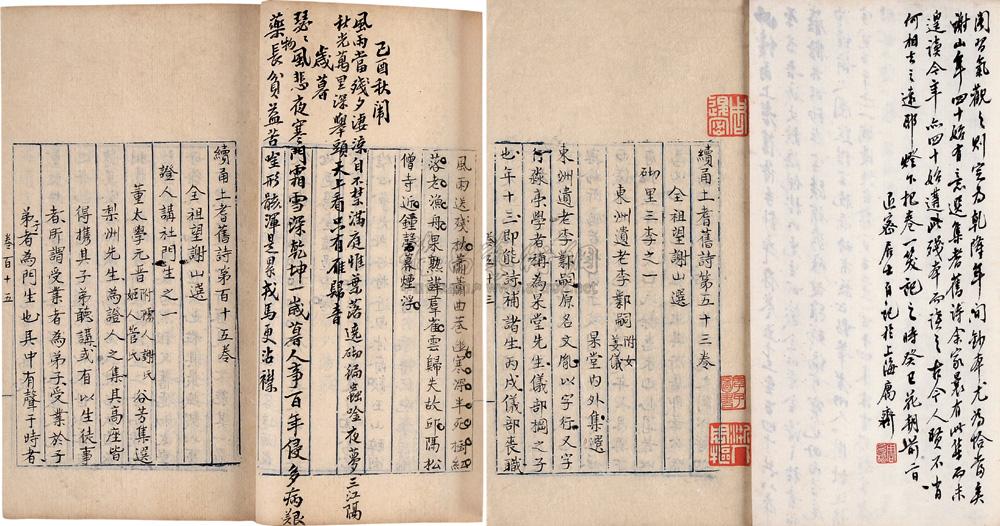 閱
氣觀之則定為乾隆年間鈔本尤為
謝山年四十始有意選集耆舊詩余家曩有此集而未
遑讀今年亦四十始遘此殘本而讀之古今人賢不肖
何相去之遠耶燈下把卷一笑記之時癸巳花朝前一日
巨來居士自記於上海
續甬上耆舊詩第五十三卷
全祖望謝山選
砌里三李之一
東洲遺老李鄴嗣附女
杲堂內外集選
東洲遺老李鄴嗣原名文胤以字行又字
淼亭學者稱為杲堂先生儀部棡之子
也年十三即能詩補諸生丙戌儀部喪職
卷五十三
風雨送殘秋蕭蕭曲巷幽寒潭半死樹紅
落老漁舟果熟譁羣雀雲歸失故邱隔松
僧寺近鐘磬暮煙浮
己酉秋閑
風雨當殘夕淒涼自不禁滿庭唯葉落遶砌徧蟲吟夜夢三江隔
秋光萬里深舉頭天上看只有雁歸音
歲暮
瑟瑟風悲夜寒門霜雪深乾坤一歲暮人事百年侵多病艱
藥物長貧益苦吟形骸渾是累戎馬更沾襟
續甬上耆舊詩第百十五卷
全祖望謝山選
證人講社門生之一
董太學元晋附孺人謝氏姬人管氏谷芳集選
梨洲先生為證人之集其高座皆
得攜其子弟聽講或有以生徒事
者所謂受業者為弟子受業於子
弟子者為門生也其中有聲于時者
卷百十五